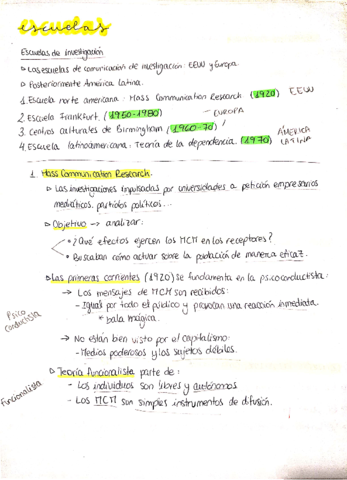 escuelas
Escuelas de investigación
▷ Las escuelas de comunicación de investigación: EEUU y Europa.
▷ Posteriormente América Latina.
1. Escuela norte americana: Mass Communication Research. (1920) EEUU
2. Escuela Frankfurt. (1950-1980) EUROPA
3. Centros culturales de Birmingham (1960-70)
4. Escuela latinoamericana: Teoría de la dependencia. (1970) AMÉRICA LATINA
1. Mass Communication Research.
▷ Las investigaciones impulsadas por universidades a petición empresarios
mediáticos, partidos políticos...
▷ Objetivo → analizar:
• ¿Qué efectos ejercen los MCM en los receptores?
• Buscaban cómo activar sobre la población de manera eficaz.
▷ Las primeras corrientes (1920) se fundamenta en la psicoconductista:
→ Los mensajes de MCM son recibidos:
- Igual por todo el público y provocan una reacción inmediata.
* bala mágica.
Psico conductista
→ No están ben visto por el capitalismo:
- Medios poderosos y los sujetos débiles.
▷ Teoría funcionalista parte de:
- Los individuos son libres y autónomos
- Los MCM son simples instrumentos de difusión.
Funcionalista